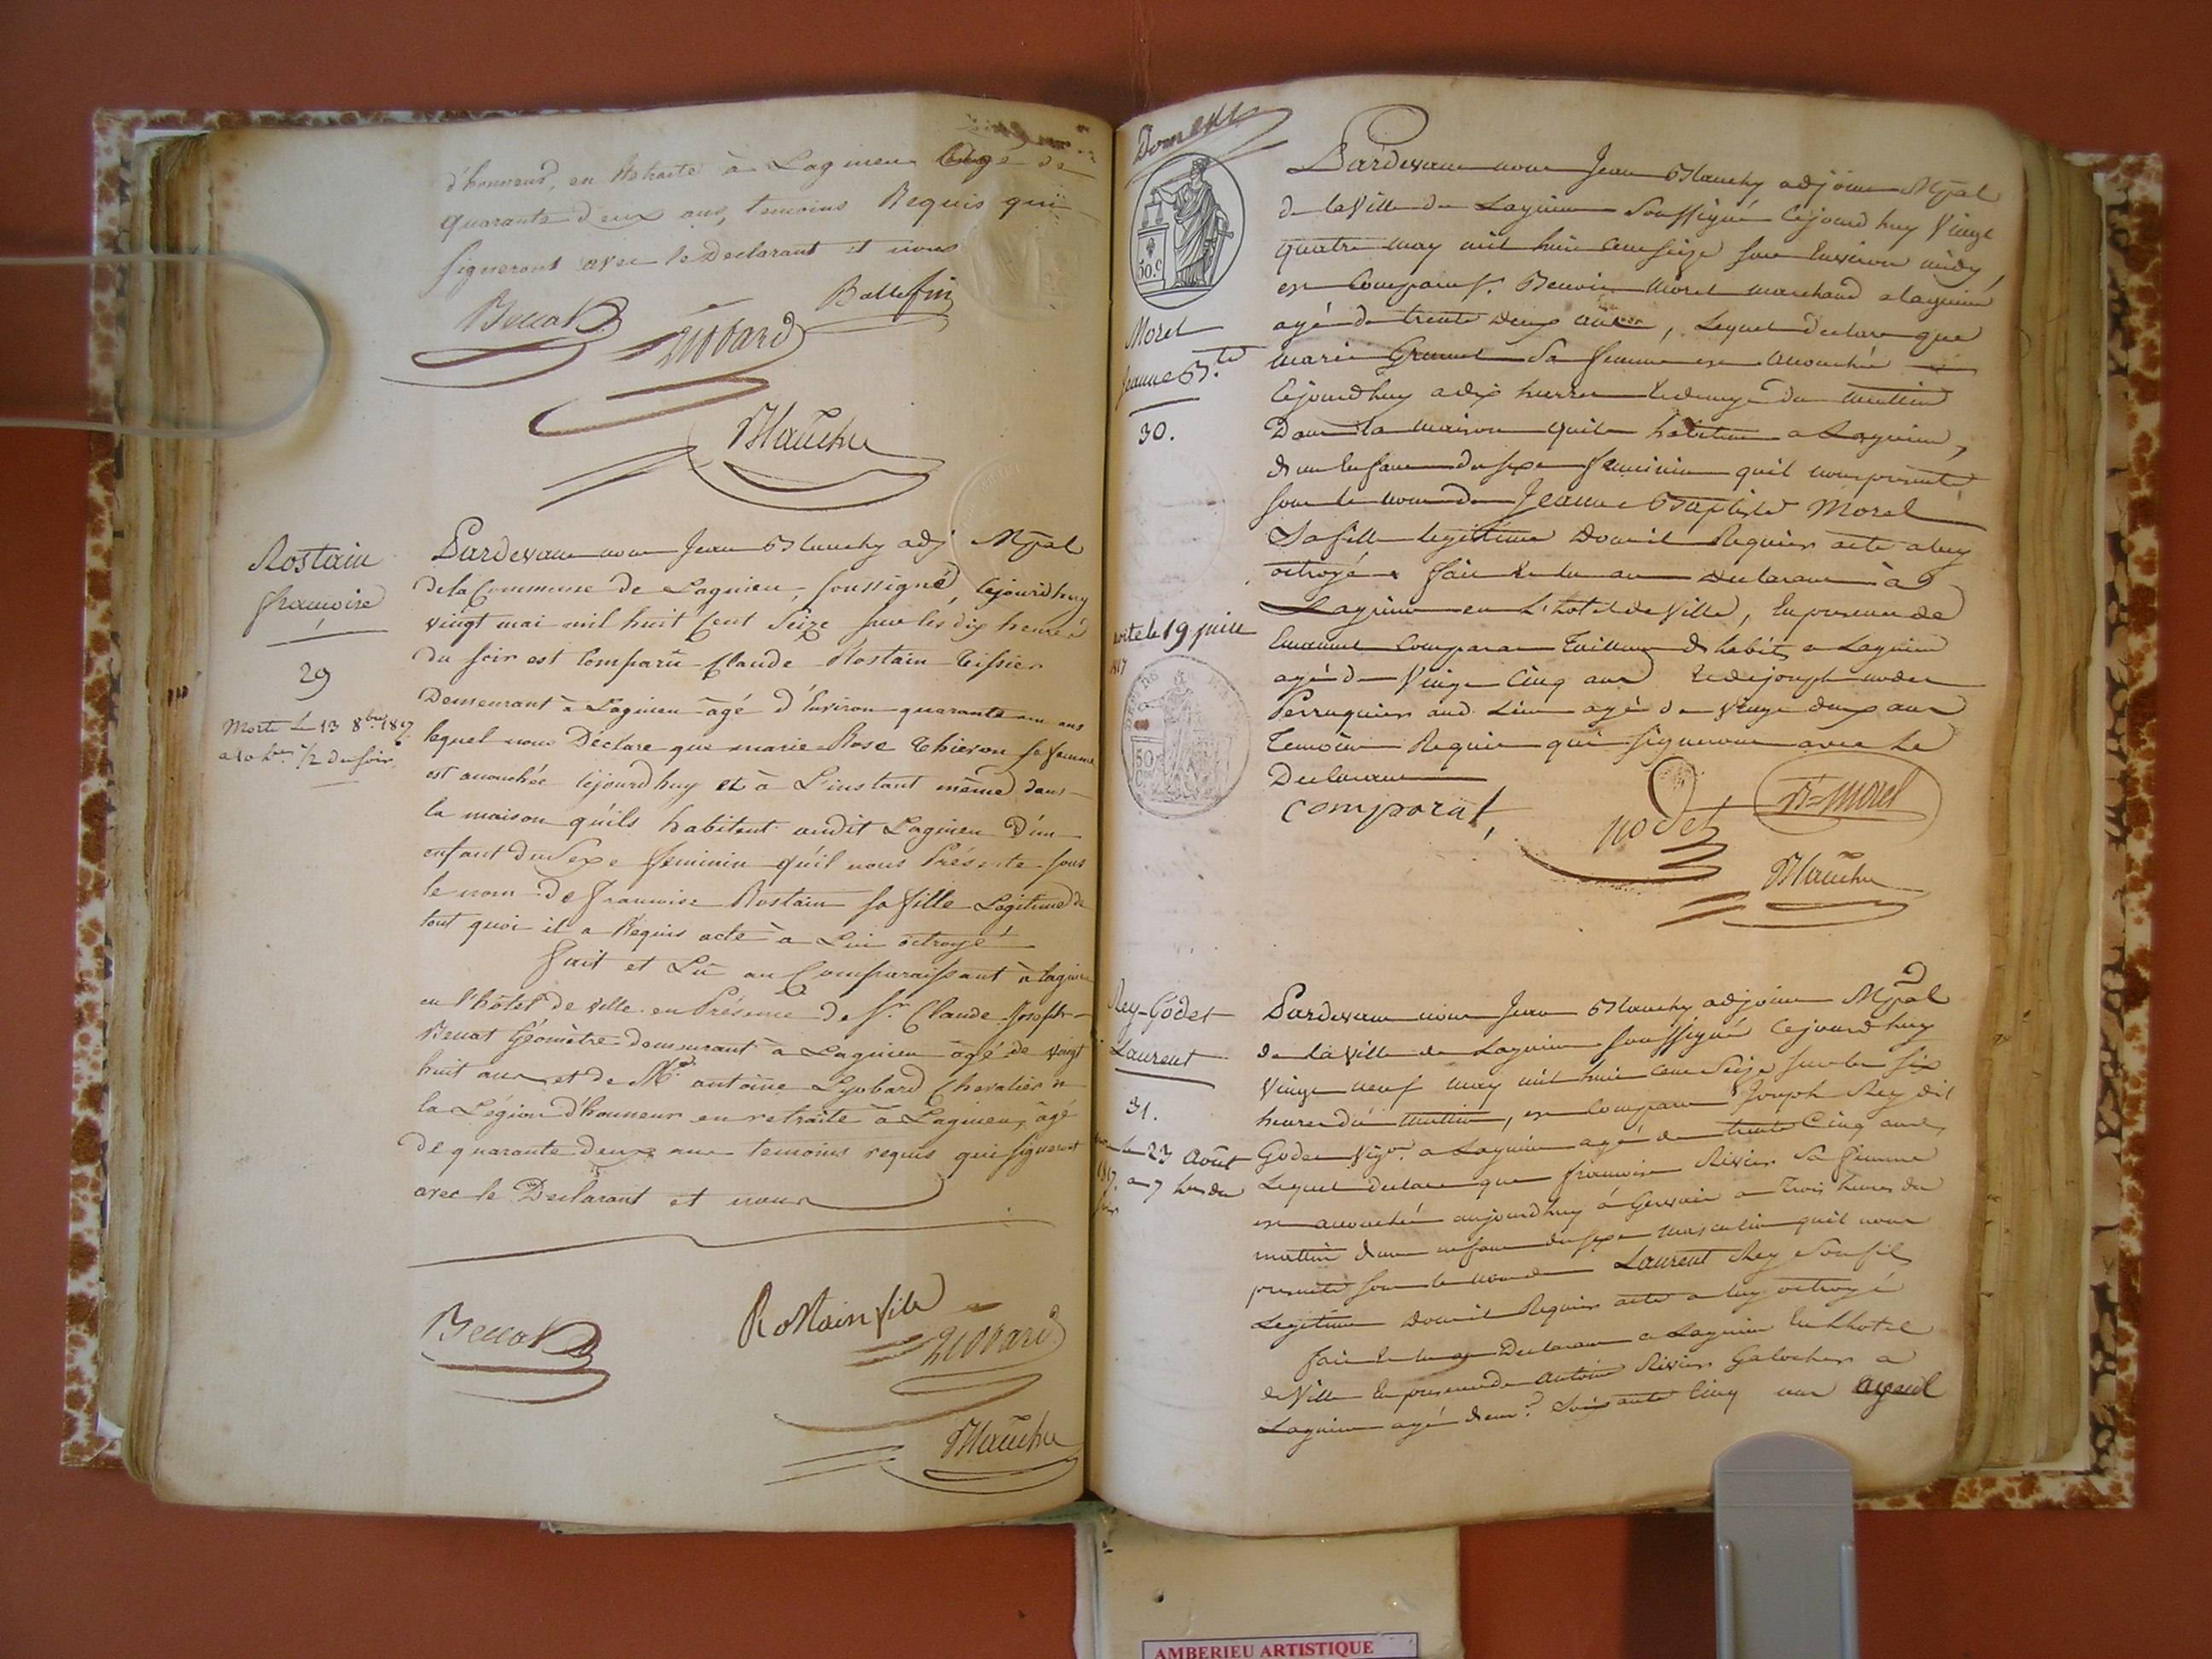 d'honneur, en Retraite à Lagnieu âgé de
quarante deux ans, temoins Requis qui
signeront avec le Declarant et nous
Ballefin
Rostain
françoise
29
Morte Le 13 8bre 1817
a 10 hres 1/2 du soir
Pardevant nous Jean Blanchy adj Mpal
de la Commune de Lagnieu, soussigné, Cejourd'huy
vingt mai mil huit Cent Seize sur les dix heures
du soir est Comparû Claude Rostain Tissier
Demeurant à Lagnieu âgé d'Environ quarante ans
lequel nous Déclare que marie Rose Thievon sa femme
est accouchée Cejourd'huy et à L'instant même dans
la maison qu'ils habitent audit Lagnieu D'un
enfant du Sexe feminin qu'il nous Présente sous
le nom de francoise Rostain sa fille Légitime de
tout quoi il a Réquis acte à Lui octroyé
fait et Lû au Comparaissant à lagnieu
en l'hôtel de ville en Présence de Sr. Claude Joseph
Benat Géomètre demeurant à Lagnieu âgé de vingt
huit ans et de Mr. antoine Lyobard Chevalier de
la Légion d'honneur en retraite à Lagnieu, âgé
de quarante deux ans temoins requis qui signeront
avec le Declarant et nous
Rostain file
Morel
Jeanne Bte
30.
morte le 19 juill
1817
50.c
Pardevant nous Jean Blanchy adjoint Mpal
de la Ville de Lagnieu Soussigné Cejourd huy Vingt
quatre may mil huit cent seize sur Environ midy,
est Comparu s. Benoit Morel marchand a lagnieu
agé de trente Deux ans, Lequel declare que
marie Grumel Sa femme est accouchée
Cejourd huy a dix heures du mattin
Dans la maison quils habitent a Lagnieu,
d un Enfant du sexe feminin quil nous presente
sous le nom de Jeanne Baptiste Morel
Sa fille legittime Dont il Requier acte a luy
octroyé fait & lu au declarant à
Lagnieu en L'hotel de Ville, En presence de
Emanuel Comparat Tailleur d habits a Lagnieu
agé de Vingt Cinq ans & de joseph nodet
Perruquier aud. Lieu agé de vingt deux ans
Temoins Requis qui signeront avec Le
Declarant
comparat
nodet
Bt morel
Rey-Godet
Laurent
31.
le 23 Août
1817. a 7 hes du
soir
Pardevant nous Jean Blanchy adjoint Mpal
de la Ville de Lagnieu soussigné Cejourd huy
Vingt neuf may mil huit cent Seize sur les six
heures du mattin, est Comparu Joseph Rey dit
Godet Vign. a Lagnieu agé de trente Cinq ans,
Lequel declare que francoise Rivier Sa femme
est accouchée aujourd huy à Gervais a Trois heures du
mattin d un enfant du sexe masculin quil nous
presente sous le nom de Laurent Rey Son fils
Legitime Dont il Requier acte a luy octroyé
fait & lu au Declarant a Lagnieu En Lhotel
de Ville En presence de Antoine Rivier Galocher a
Lagnieu agé d'env. Soixante Cinq ans ayeul
AMBERIEU ARTISTIQUE